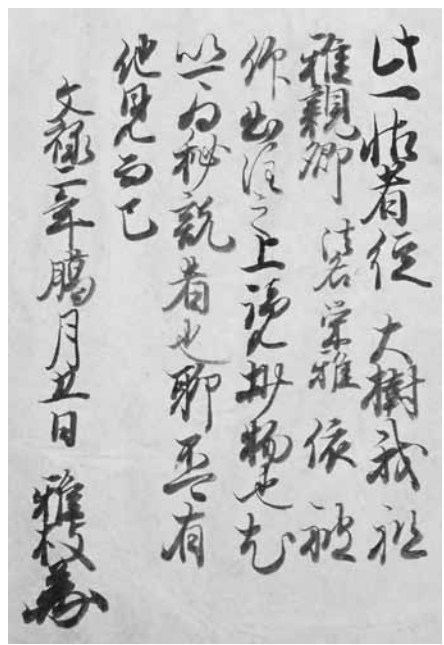 此一帖者従　大樹我祖
雅親卿 法名栄雅 依被
作出注之上覧抄物也尤
以為秘説者也聊不可有
他見而已
文禄二年臈月五日　雅枝